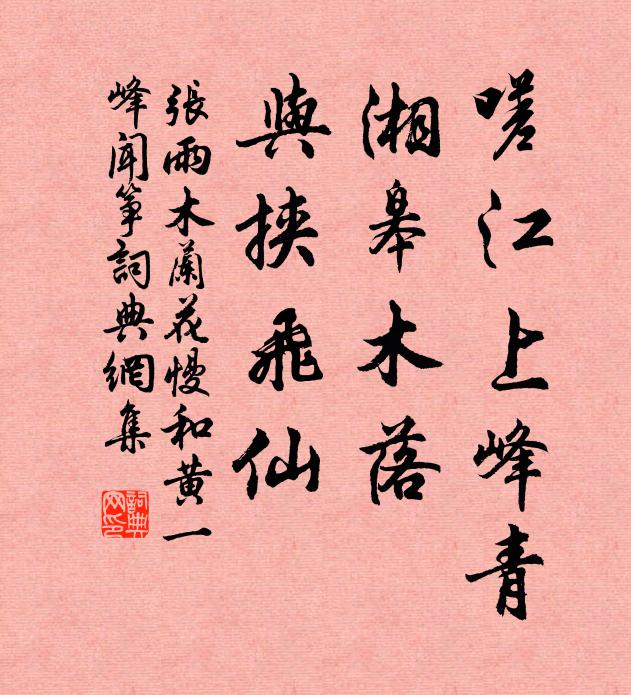 嗟江上峰青
湘皋木落
與挾飛仙
張雨木蘭花慢和黄一
峰聞箏詞典網集
詞典網印